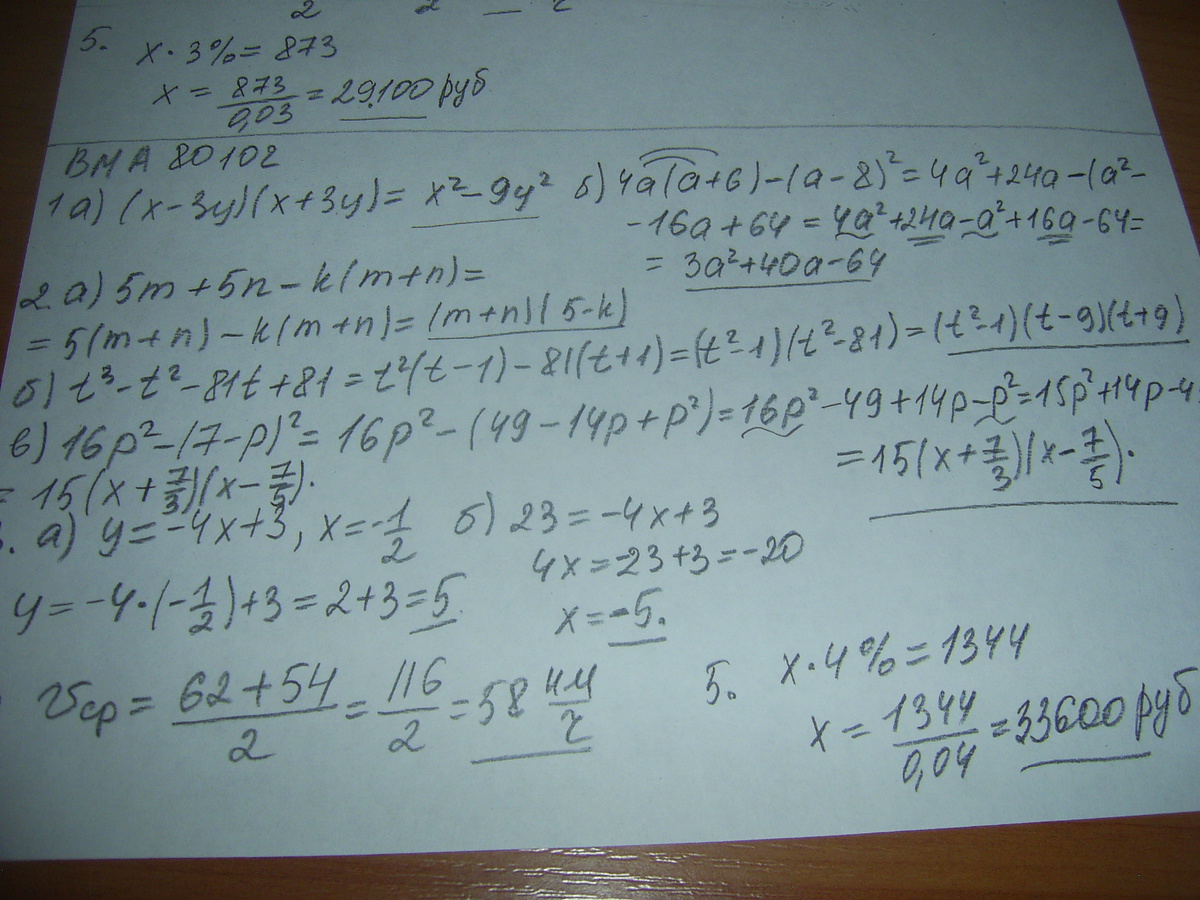 5. x·3% = 873
x = 873/0,03 = 29.100 руб
ВМА 80102
1а) (x-3y)(x+3y) = x²-9y² б) 4a(a+6)-(a-8)² = 4a²+24a-(a²-
-16a+64 = 4a²+24a-a²+16a-64=
= 3a²+40a-64
2.а) 5m+5n-k(m+n)=
= 5(m+n)-k(m+n) = (m+n)(5-k)
б) t³-t²-81t+81 = t²(t-1)-81(t+1) = (t²-1)(t²-81) = (t²-1)(t-9)(t+9)
в) 16p²-(7-p)² = 16p²-(49-14p+p²) = 16p²-49+14p-p² = 15p²+14p-4
= 15(x+7/3)(x-7/5).
= 15(x+7/3)(x-7/5).
а) y = -4x+3, x = -1/2 б) 23 = -4x+3
4x = -23+3 = -20
y = -4·(-1/2)+3 = 2+3 = 5
x = -5.
υср = 62+54/2 = 116/2 = 58 км/ч
5. x·4% = 1344
x = 1344/0,04 = 33600 руб